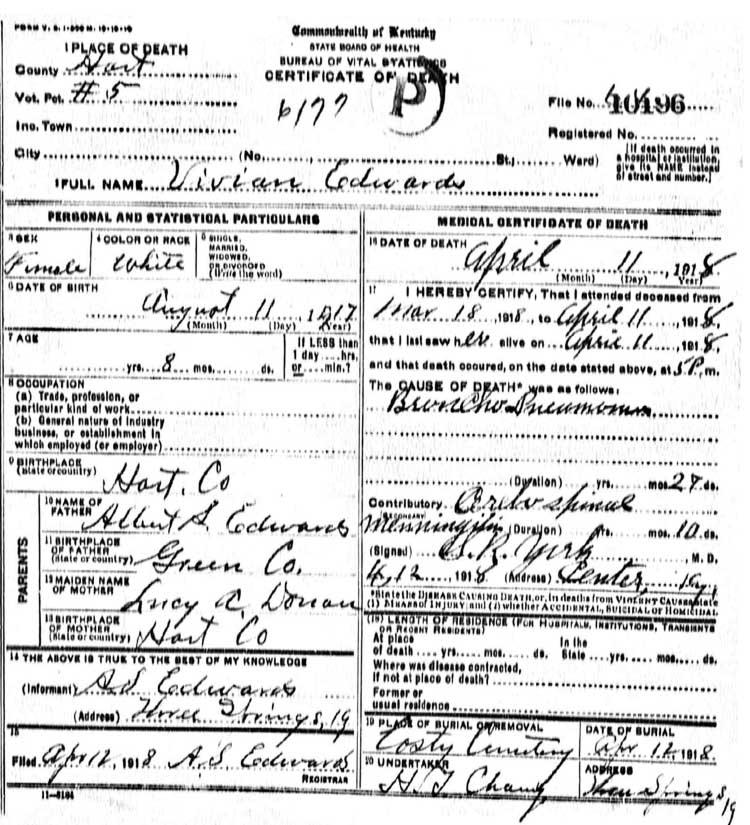 FORM V. S. 1-500 M. 10-10-10
Commonwealth of Kentucky
STATE BOARD OF HEALTH
BUREAU OF VITAL STATISTICS
CERTIFICATE OF DEATH
1 PLACE OF DEATH
County Hart
Vot. Pct. #5
6177
P
File No. 10196
Ino. Town
Registered No.
City (No. St.; Ward)
[If death occurred in a hospital or institution, give its NAME instead of street and number.]
1 FULL NAME Vivian Edwards
PERSONAL AND STATISTICAL PARTICULARS
3 SEX
Female
4 COLOR OR RACE
White
5 SINGLE, MARRIED, WIDOWED, OR DIVORCED (Write the word)
6 DATE OF BIRTH
August 11, 1917
(Month) (Day) (Year)
7 AGE
8
yrs. mos. ds.
If LESS than 1 day hrs. or min.?
8 OCCUPATION
(a) Trade, profession, or
particular kind of work
(b) General nature of industry
business, or establishment in
which employed (or employer)
9 BIRTHPLACE
(State or country)
Hart Co
PARENTS
10 NAME OF FATHER
Albert S. Edwards
11 BIRTHPLACE OF FATHER
(State or country)
Green Co.
12 MAIDEN NAME OF MOTHER
Lucy A. Donan
13 BIRTHPLACE OF MOTHER
(State or country)
Hart Co
14 THE ABOVE IS TRUE TO THE BEST OF MY KNOWLEDGE
(Informant) A.S. Edwards
(Address) Three Springs, Ky
15
Filed Apr 12, 1918 A.S. Edwards
REGISTRAR
11-5184
MEDICAL CERTIFICATE OF DEATH
16 DATE OF DEATH
April 11, 1918
(Month) (Day) Year)
17 I HEREBY CERTIFY, That I attended deceased from
Mar 18 1918, to April 11, 1918,
that I last saw her alive on April 11, 1918,
and that death occured, on the date stated above, at 5 P. m.
The CAUSE OF DEATH* was as follows,
Broncho Pneumonia
(Duration) yrs. mos. 27 ds.
Contributory
(Duration) yrs. mos. 10 ds.
(Signed) York M. D.
4/12, 1918 (Address) Center, Ky.
*State the DISEASE CAUSING DEATH, or, in deaths from VIOLENT CAUSES state
(1) MEANS OF INJURY; and (2) whether ACCIDENTAL, SUICIDAL or HOMICIDAL
(18) LENGTH OF RESIDENCE (FOR HOSPITALS, INSTITUTIONS, TRANSIENTS
OR RECENT RESIDENTS)
At place of death yrs. mos. ds. In the State yrs. mos. ds.
Where was disease contracted,
If not at place of death?
Former or
usual residence
19 PLACE OF BURIAL OR REMOVAL
Cemetery
DATE OF BURIAL
Apr. 12, 1918.
20 UNDERTAKER
ADDRESS
Three Springs, Ky